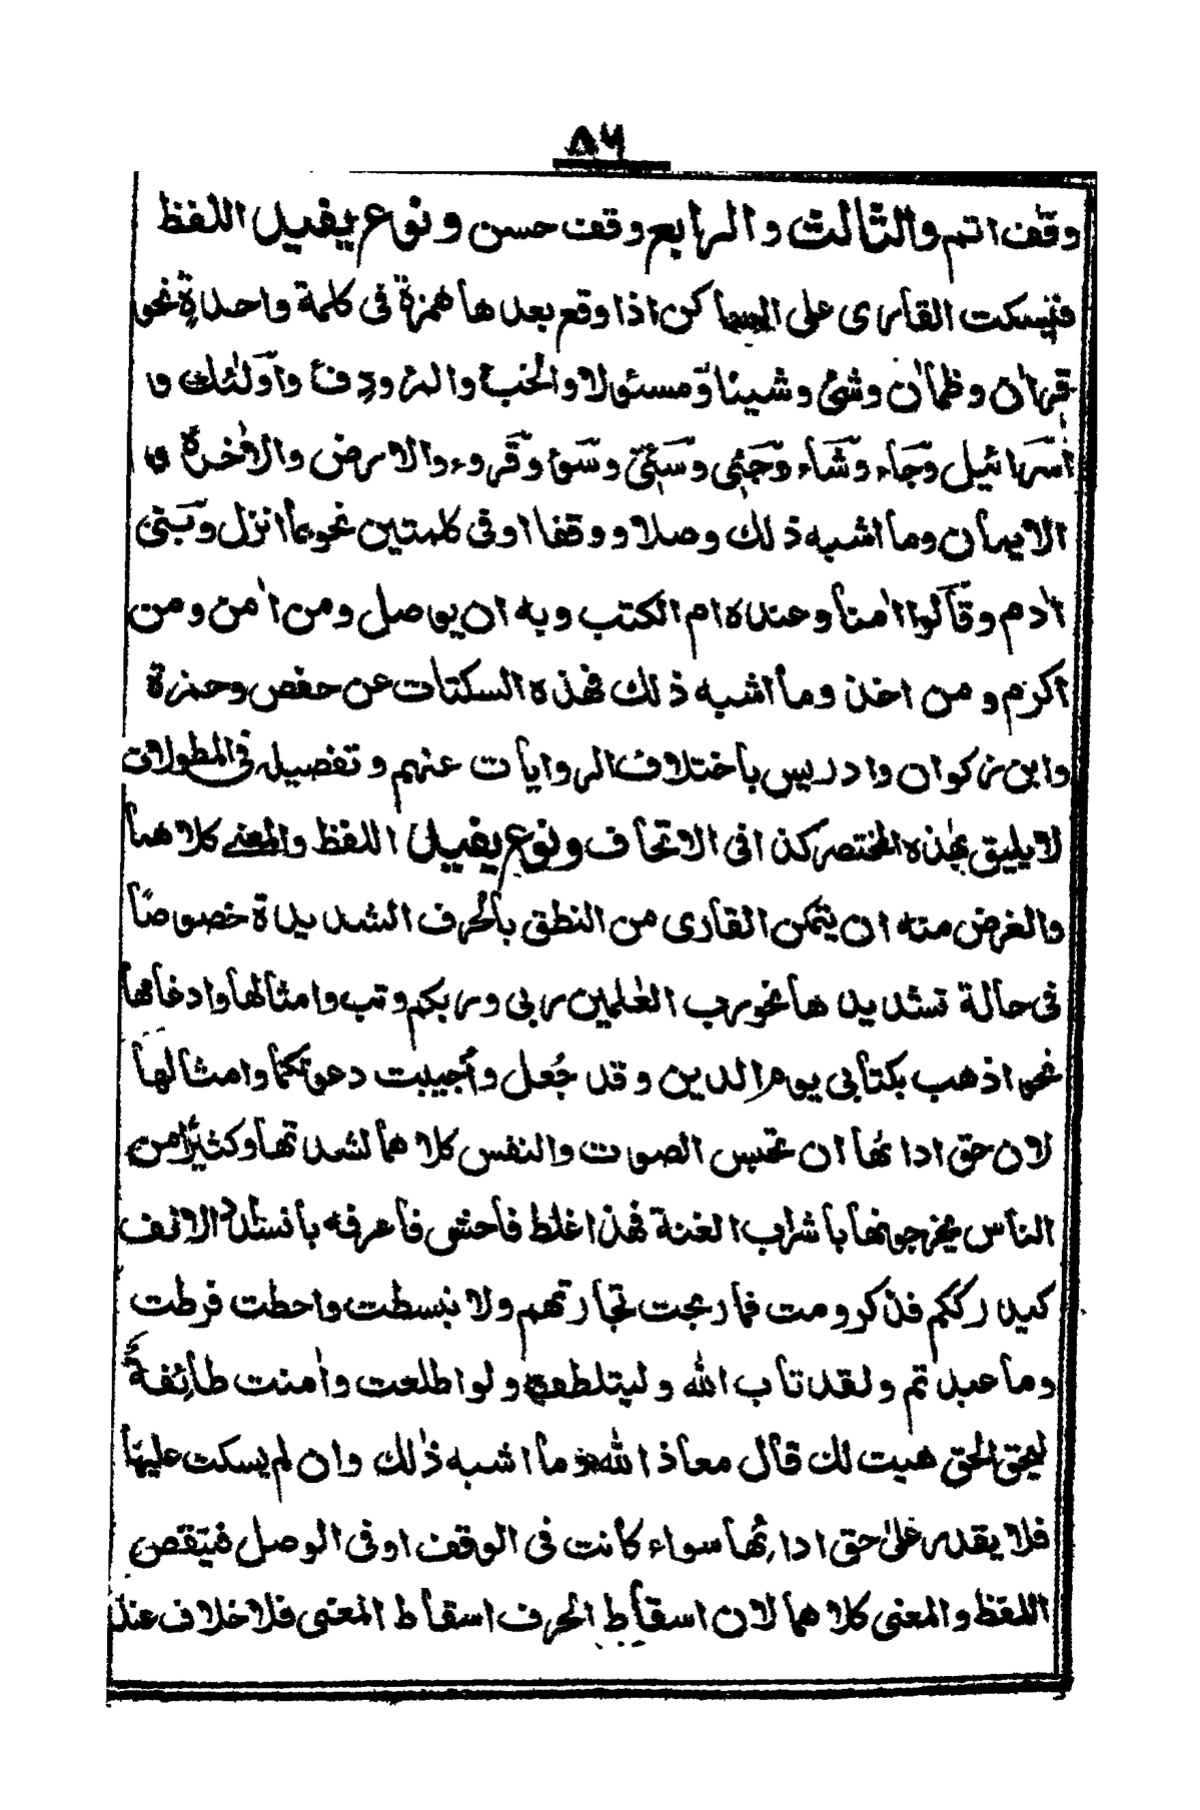 ٥٦
وقف اتم والثالث والرابع وقف حسن ونوع يفيد اللفظ
فيسكت القاری علی الساكن اذا وقع بعدها همزة فی كلمة واحدةٍ نحو
قراٰن وظماٰن وشئ وشيئا ومسئولا والخبأ والمرء ودفء واولٰئك و
اسرائيل وجاء وشاء وجئ وسئ وسوء وقروء والارض والاٰخرة و
الايمان وما اشبه ذلك وصلا ووقفا او فی كلمتين نحو بما انزل وبنی
اٰدم وقالوا اٰمنا وعنده ام الكتب وبه ان يوصل ومن اٰمن ومن
اكرم ومن اخذ وما اشبه ذلك فهذه السكتات عن حفص وحمزة
وابن زكوان وادريس باختلاف الروايات عنهم وتفصيله فی المطولات
لا يليق بهذه المختصر كذا فی الاتحاف ونوع يفيد اللفظ والمعنے كلاهما
والغرض منه ان يتمكن القاری من النطق بالحرف الشديدة خصوصًا
فی حالة تشديدها نحو رب العٰلمين ربی وربكم وتب وامثالها وادغامها
نحو اذهب بكتابی يوم الدين وقد جُعل وأجيبت دعوتكما وامثالها
لان حق ادائها ان تحبس الصوت والنفس كلاهما لشدتها وكثيرًا من
الناس يخرجونها باشراب الغنة فهذا غلط فاحش فاعرفه بانسداد الانف
كيد ركنكم فذكر ومت فما ربحت تجارتهم ولا نبسطت واحطت فرطت
وما عبدتم ولقد تاب الله وليتلطف ولو اطلعت واٰمنت طائفةٌ
ليحق الحق هيت لك قال معاذ الله وما اشبه ذٰلك وان لم يسكت عليها
فلا يقدر علیٰ حق ادائها سواء كانت فی الوقف او فی الوصل فيتقص
اللفظ والمعنی كلاهما لان اسقاط الحرف اسقاط المعنی فلا خلاف عند